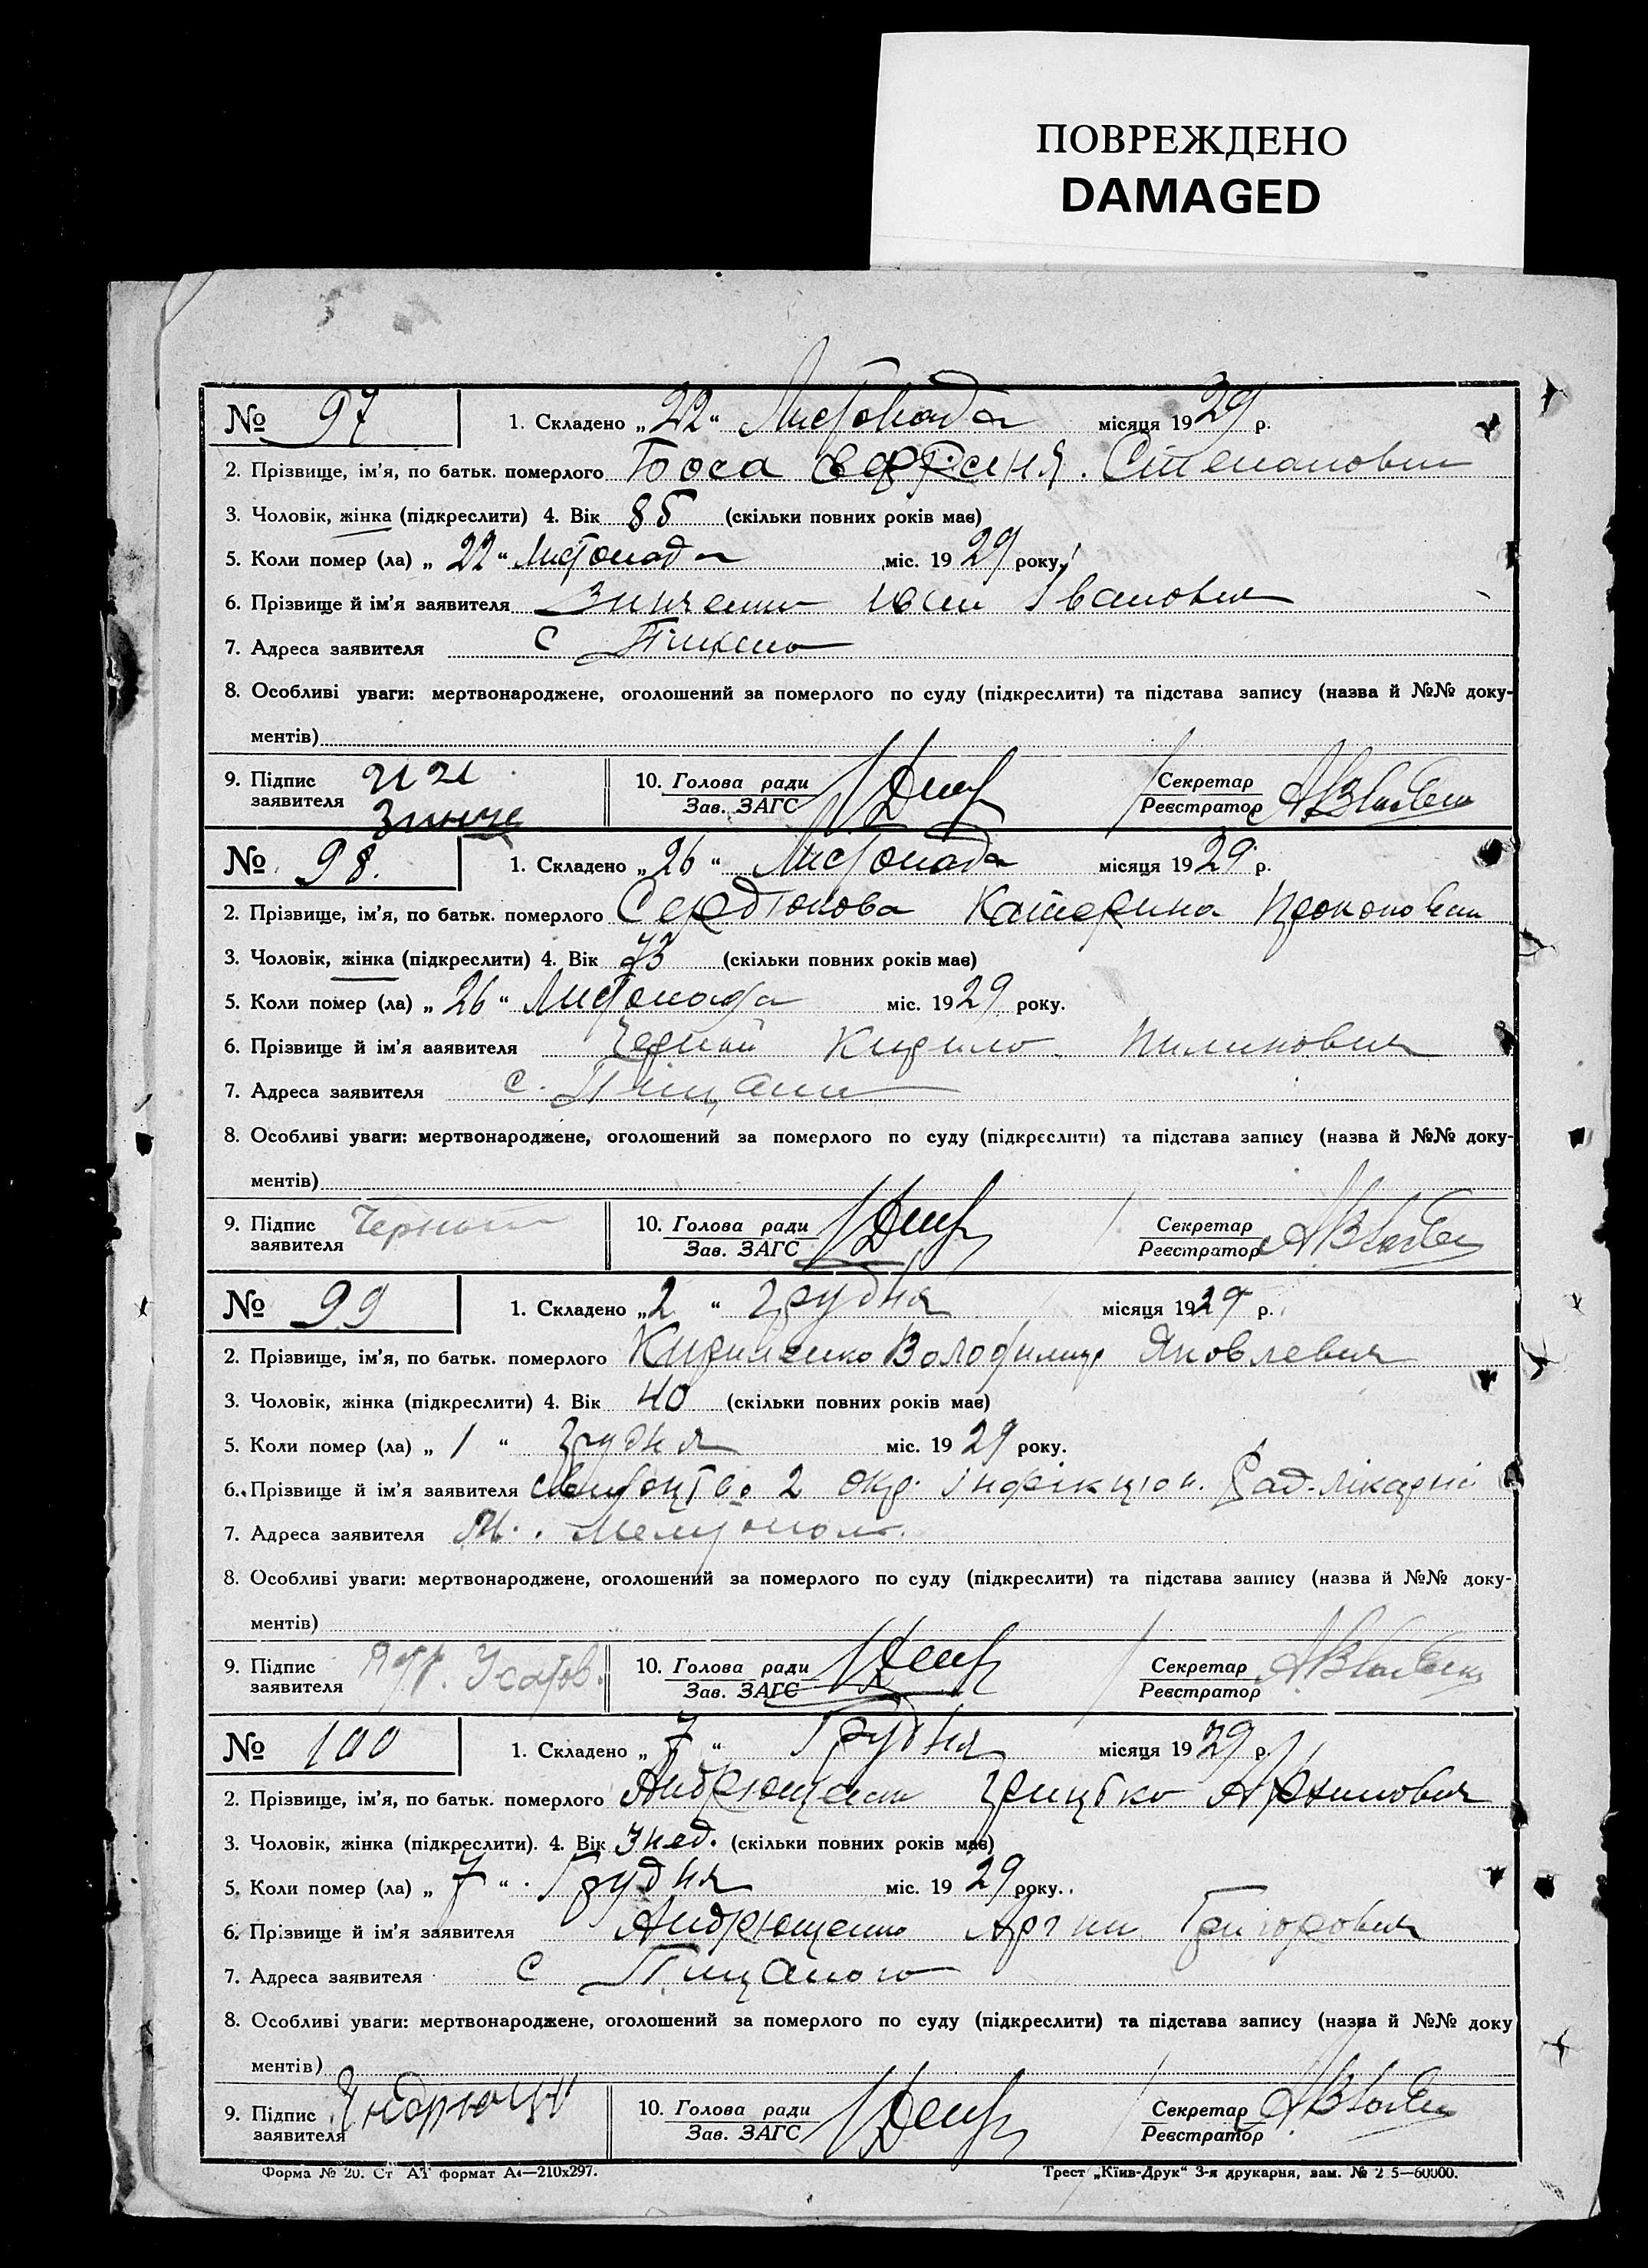 ПОВРЕЖДЕНО
DAMAGED
№ 97 1. Складено „22“ Листопада місяця 1929 р.
2. Прізвище, ім'я, по батьк. померлого Боса Степанович
3. Чоловік, жінка (підкреслити) 4. Вік 85 (скільки повних років має)
5. Коли помер (ла) „22“ Листопада міс. 1929 року.
6. Прізвище й ім'я заявителя Іванович
7. Адреса заявителя с
8. Особливі уваги: мертвонароджене, оголошений за померлого по суду (підкреслити) та підстава запису (назва й №№ доку-
ментів)
9. Підпис 10. Голова ради Секретар
заявителя Зинче Зав. ЗАГС Реєстратор
№ 98. 1. Складено „26“ Листопада місяця 1929 р.
2. Прізвище, ім'я, по батьк. померлого Сердюкова Катерина
3. Чоловік, жінка (підкреслити) 4. Вік 73 (скільки повних років має)
5. Коли помер (ла) „26“ Листопада міс. 1929 року.
6. Прізвище й ім'я ааявителя Кирило Пилипович
7. Адреса заявителя с. Піщани
8. Особливі уваги: мертвонароджене, оголошений за померлого по суду (підкреслити) та підстава запису (назва й №№ доку-
ментів)
9. Підпис 10. Голова ради Секретар
заявителя Зав. ЗАГС Реєстратор
№ 99 1. Складено „2“ грудня місяця 1929 р.
2. Прізвище, ім'я, по батьк. померлого Кириленко Володимир Яковлевич
3. Чоловік, жінка (підкреслити) 4. Вік 40 (скільки повних років має)
5. Коли помер (ла) „1“ грудня міс. 1929 року.
6. Прізвище й ім'я заявителя 2 окр. інфікцион. Рад-лікарні
7. Адреса заявителя М. Мелітополь.
8. Особливі уваги: мертвонароджене, оголошений за померлого по суду (підкреслити) та підстава запису (назва й №№ доку-
ментів)
9. Підпис 10. Голова ради Секретар
заявителя Зав. ЗАГС Реєстратор
№ 100 1. Складено „7“ Грудня місяця 1929 р.
2. Прізвище, ім'я, по батьк. померлого Андрющенко Грицько
3. Чоловік, жінка (підкреслити). 4. Вік 3 нед. (скільки повних років має)
5. Коли помер (ла) „7“ Грудня міс. 1929 року.
6. Прізвище й ім'я заявителя Андрющенко Григорович
7. Адреса заявителя с Піщаного
8. Особливі уваги: мертвонароджене, оголошений за померлого по суду (підкреслити) та підстава запису (назва й №№ доку
ментів)
9. Підпис 10. Голова ради Секретар
заявителя Зав. ЗАГС Реєстратор
Форма № 20. Ст А4 формат А4—210х297. Трест „Київ-Друк“ 3-я друкарня, зам. № 2 5—60000.